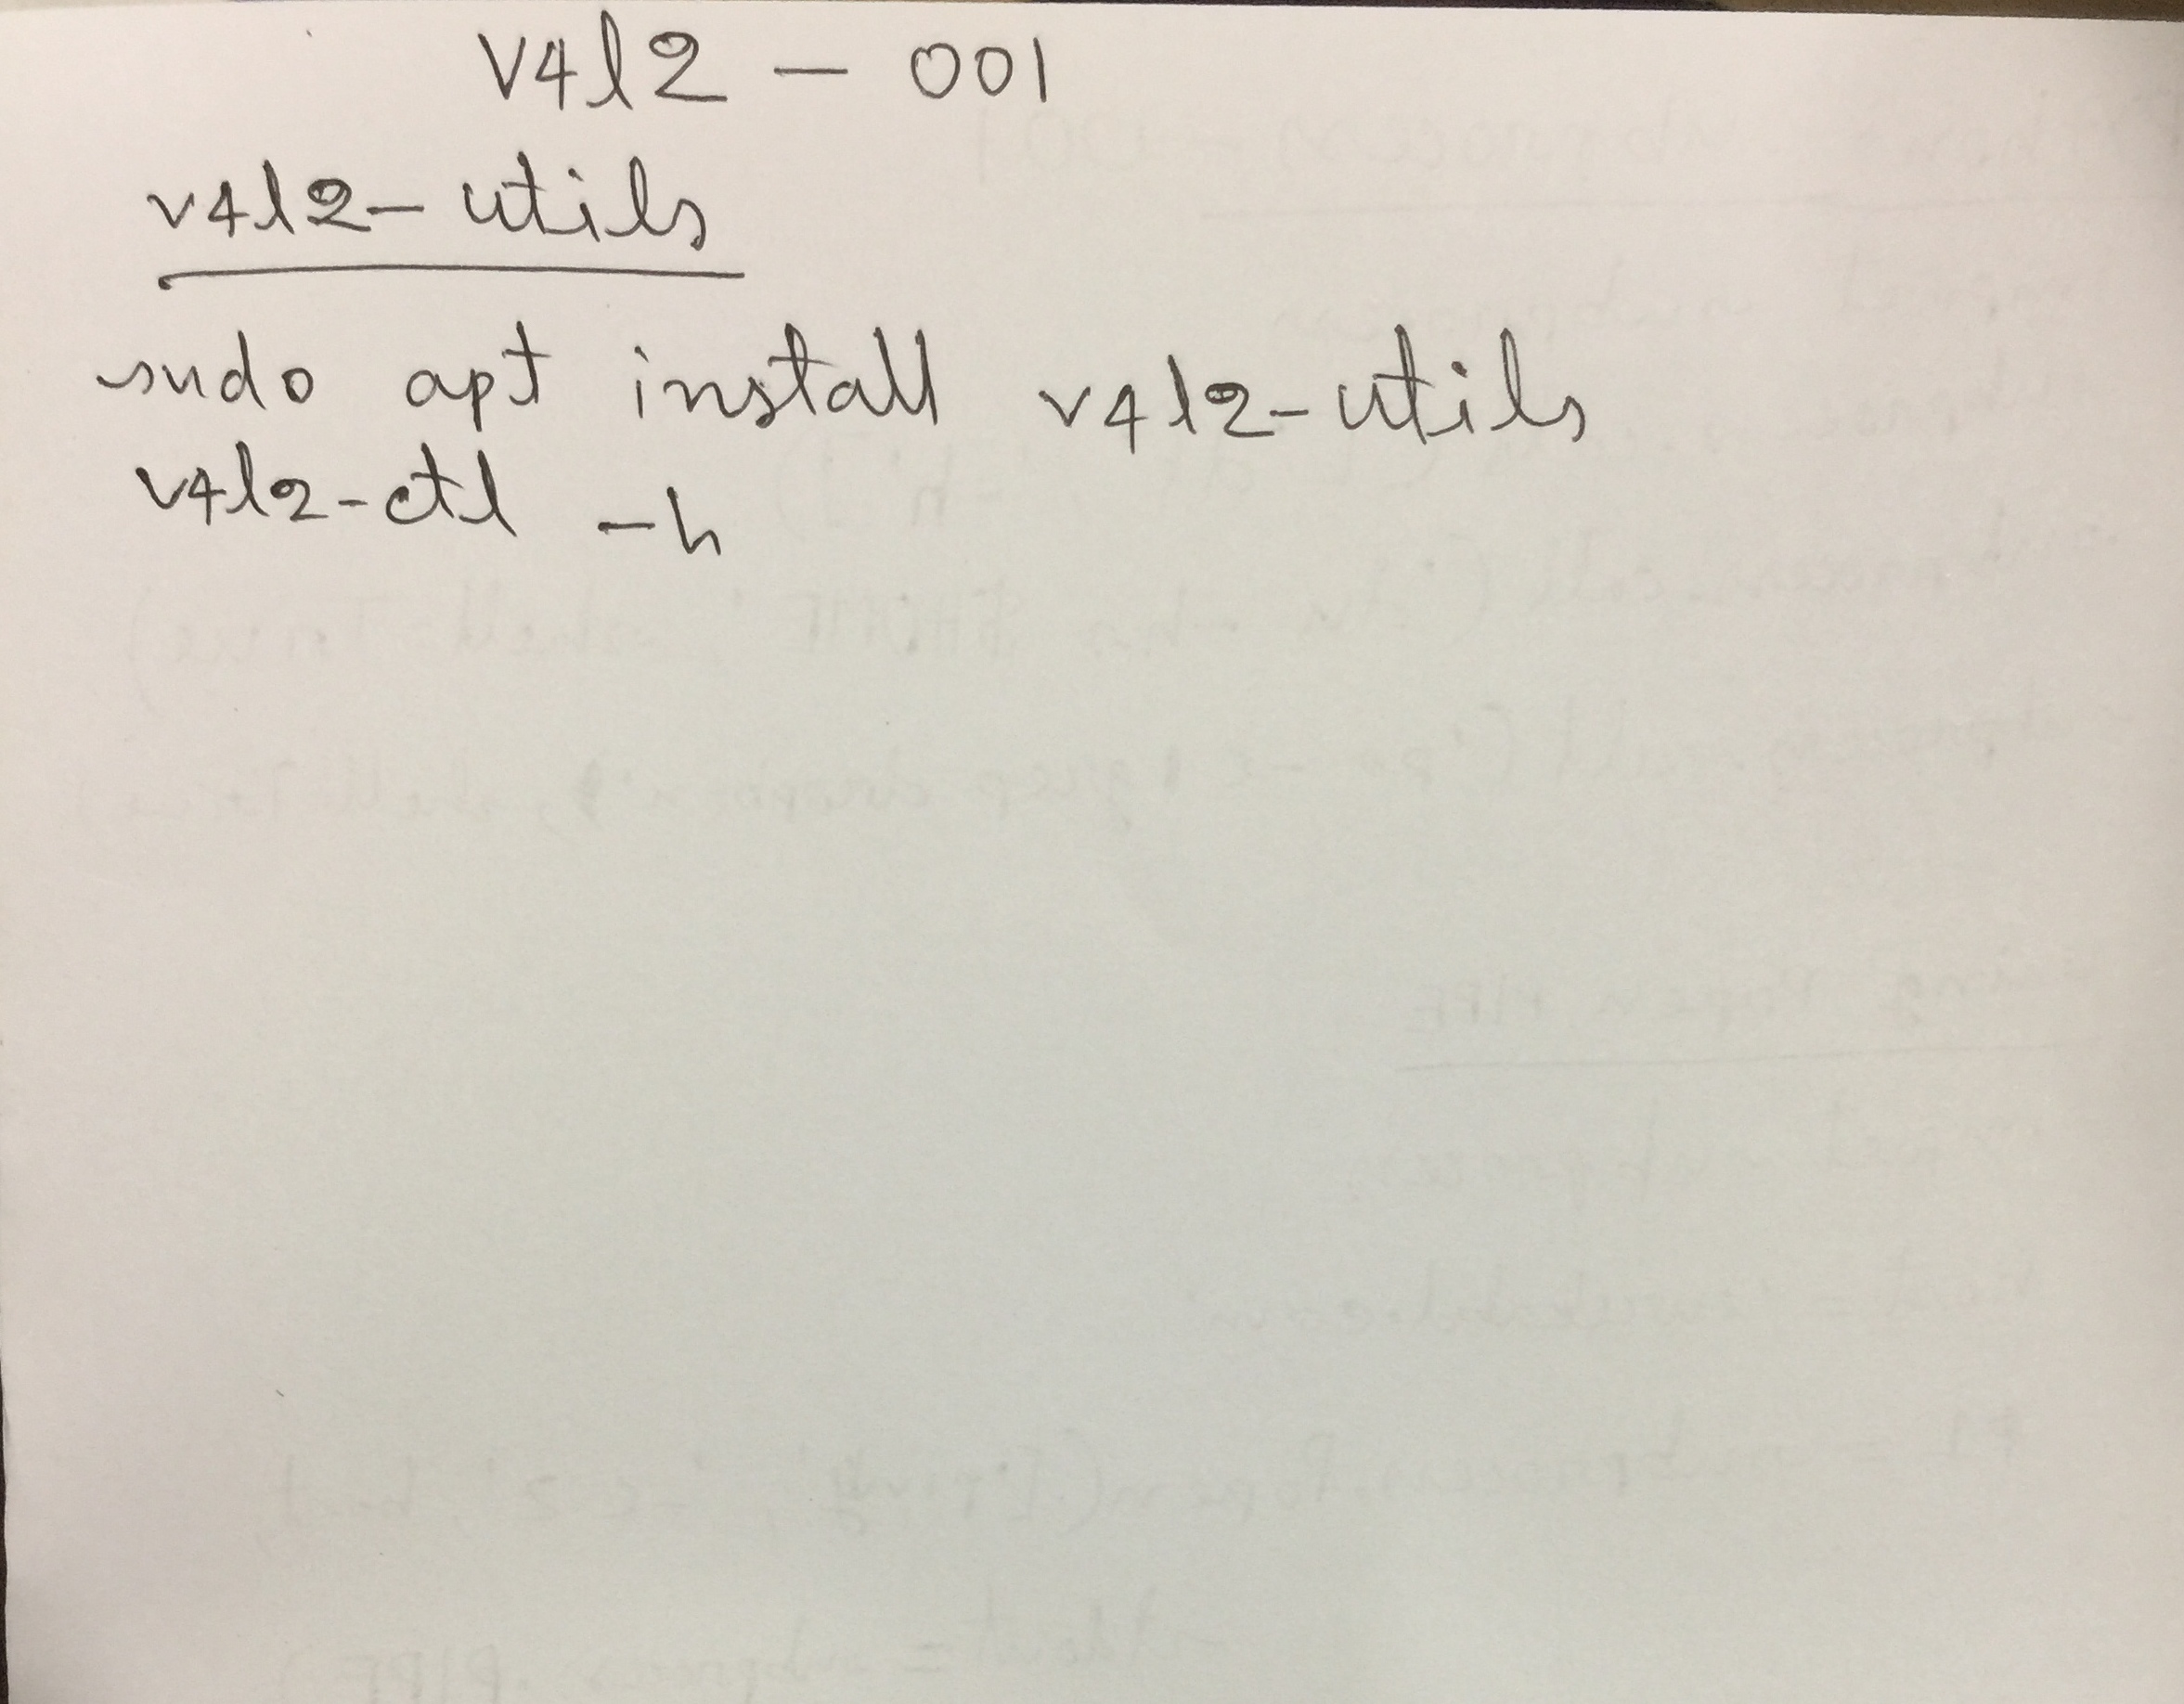 V4l2 - 001
v4l2-utils
sudo apt install v4l2-utils
v4l2-ctl -h